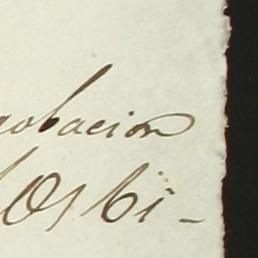 obacion
Osbi-